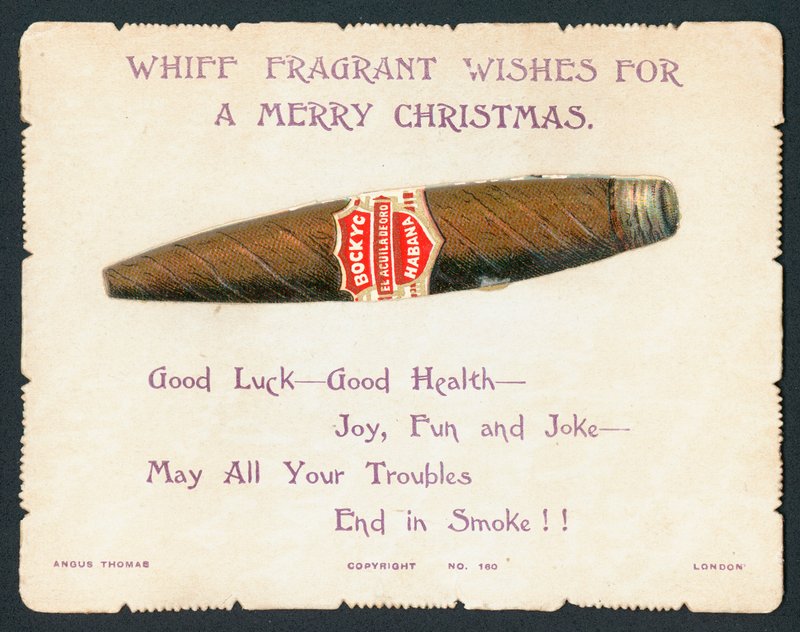 WHIFF FRAGRANT WISHES FOR
A MERRY CHRISTMAS.
BOCKYC
EL AGUILA DE ORO
HABANA
Good Luck—Good Health—
Joy, Fun and Joke—
May All Your Troubles
End in Smoke!!
ANGUS THOMAS COPYRIGHT NO. 160 LONDON